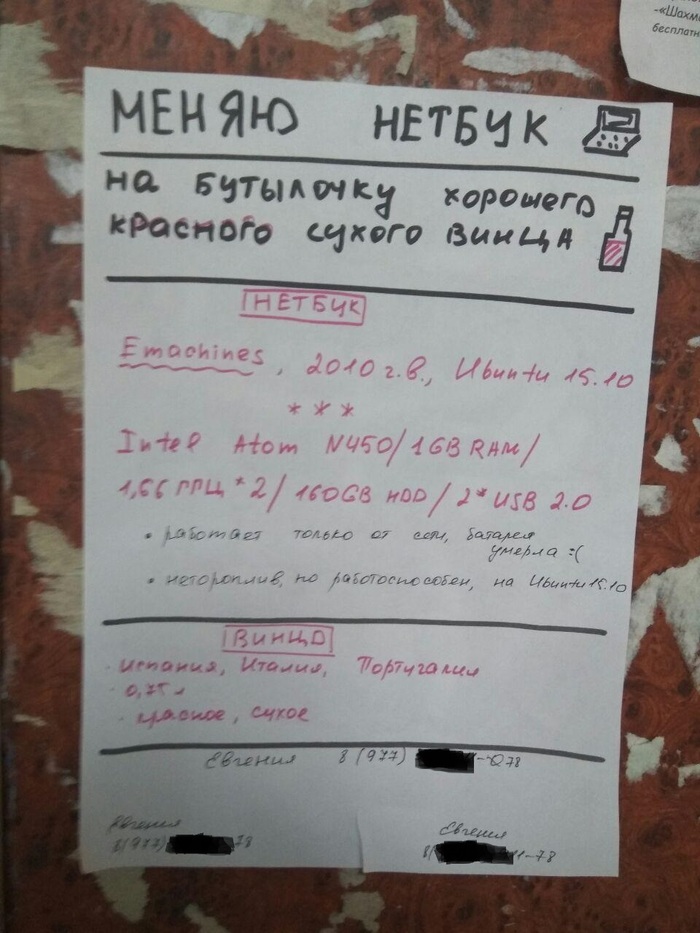 -«Шахм
бесплатн
МЕНЯЮ НЕТБУК
на БУТЫЛОЧКУ хорошего
красного сухого ВИНЦА
НЕТБУК
Emachines, 2010 г.в., Ubuntu 15.10
* * *
Intel Atom N450/1GB RAM/
1,66 ГГЦ *2/ 160GB HDD/ 2* USB 2.0
• работает только от сети, батарея
умерла :(
• нетороплив, но работоспособен, на Ubuntu 15.10
ВИНЦО
· Испания, Италия, Португалия
· 0,75 л
· красное, сухое
Евгения 8(977) 78
Евгения Евгения
8(977) 78 8( 11-78